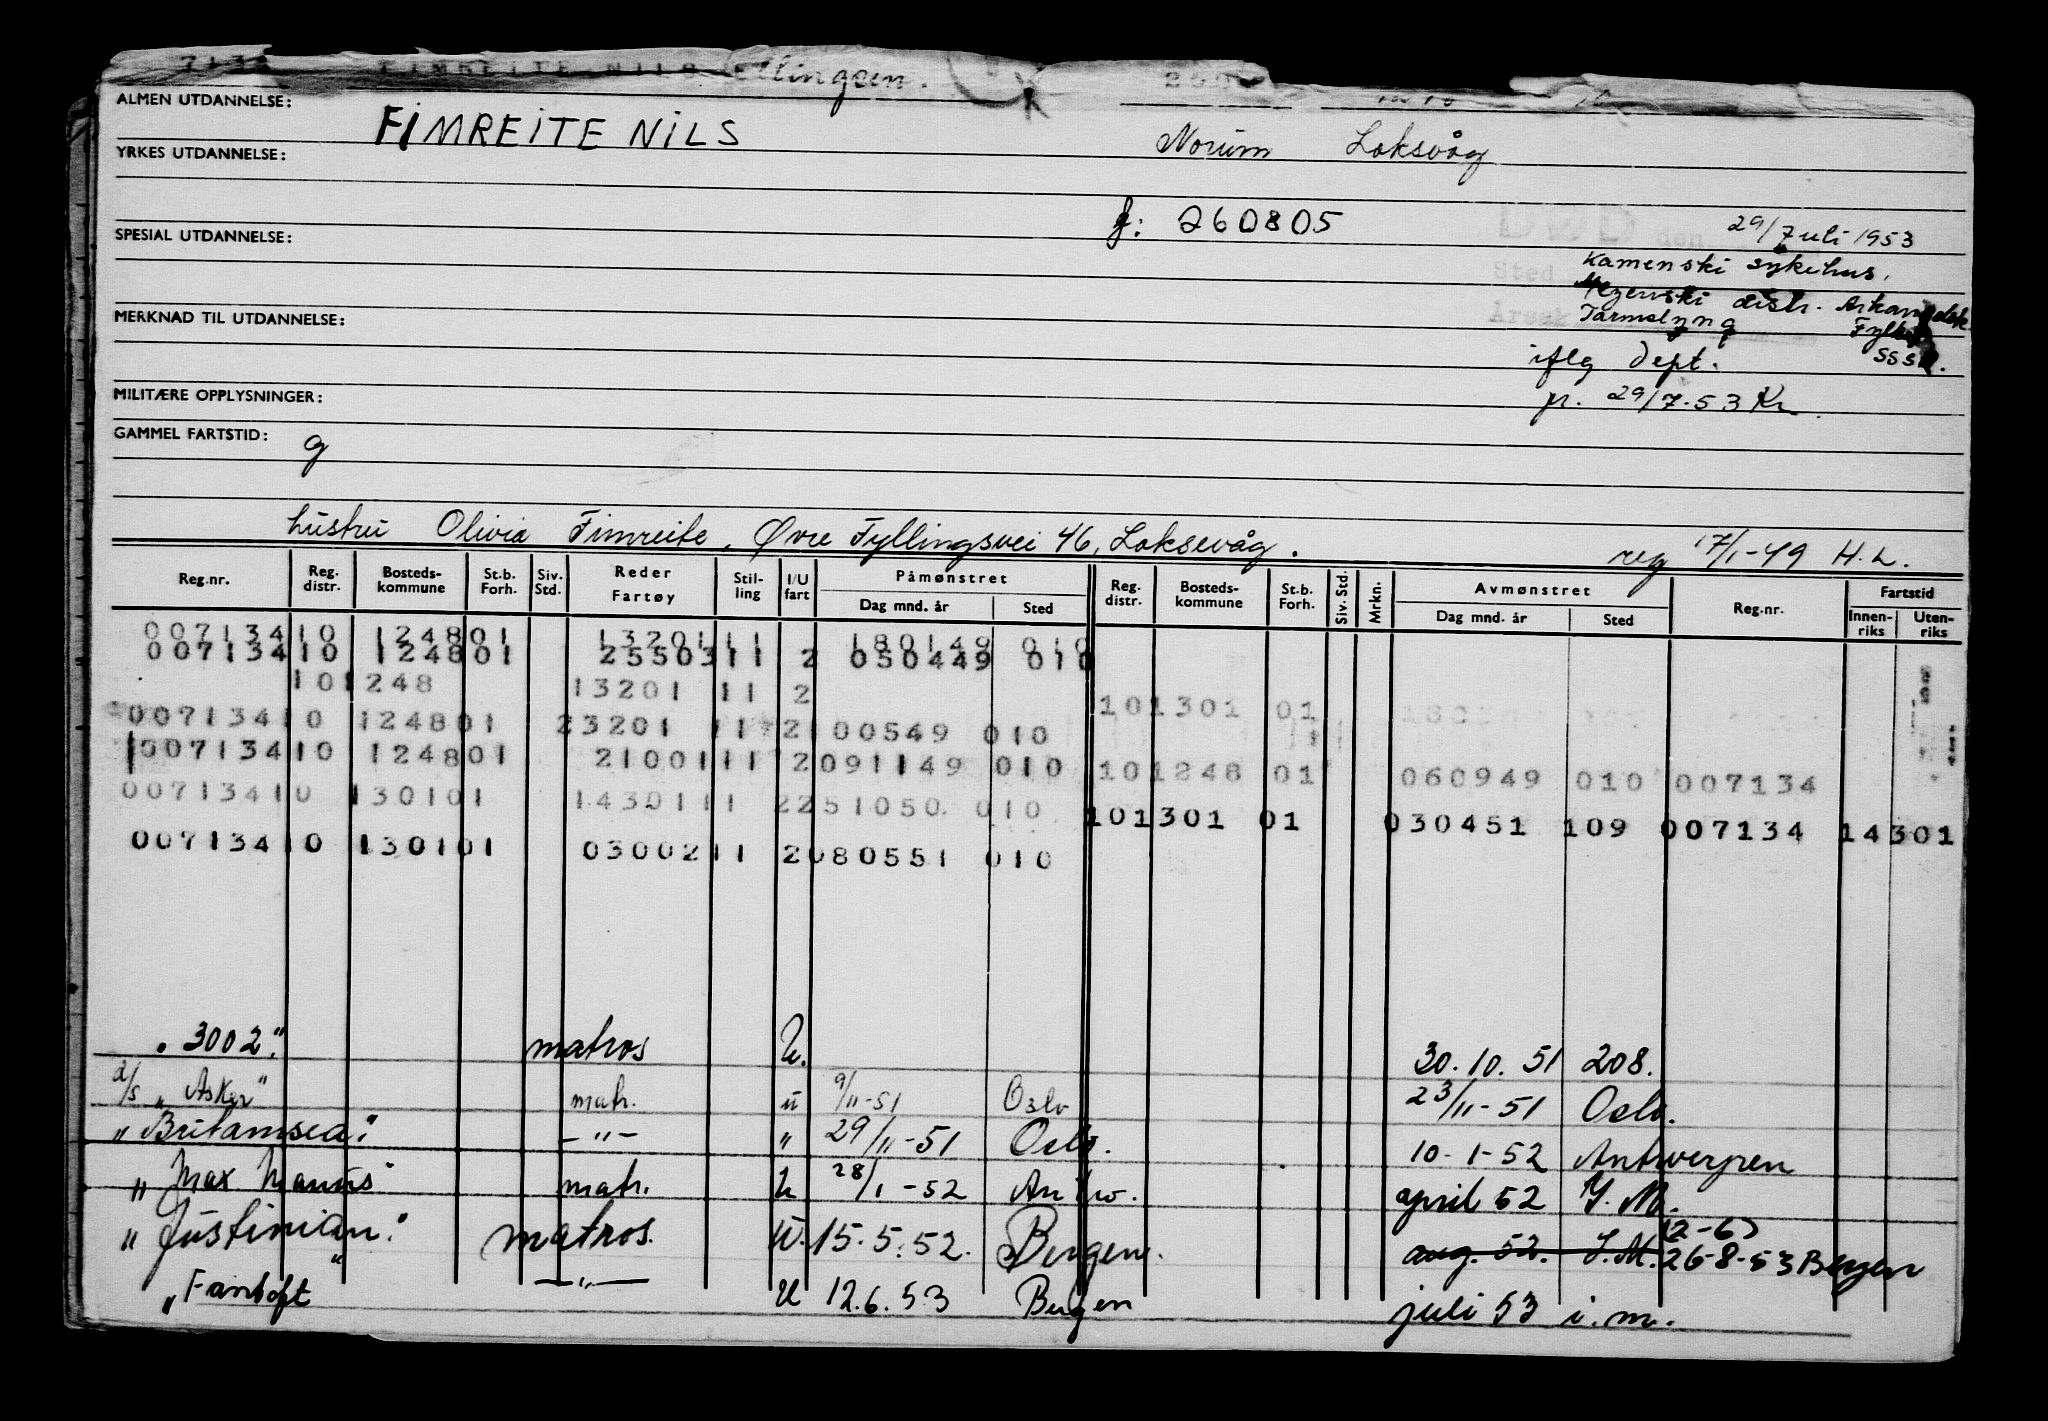 7134 FIMREITE NILS Ellingsen.
ALMEN UTDANNELSE:
FIMREITE NILS
Norum Loksvåg
YRKES UTDANNELSE:
f: 260805
SPESIAL UTDANNELSE:
DØD den 29/7 uli 1953
Sted Kamenski sykehus,
Mezenski distr. Arkangelsk
Årsak Tarmslyng Fylke
SSSR.
MERKNAD TIL UTDANNELSE:
iflg Dept.
pr. 29/7-53 Kr.
MILITÆRE OPPLYSNINGER:
GAMMEL FARTSTID: g
hustru Olivia Fimreite, Øvre Fyllingsvei 46, Loksevåg. reg 17/1-49 H.L.
Reg.nr. Reg. distr. Bosteds-kommune St.b. Forh. Siv. Std. Reder Fartøy Stil-ling I/U fart Påmønstret Dag mnd. år Sted Reg. distr. Bosteds-kommune St.b. Forh. Siv. Std. Mrkn. Avmønstret Dag mnd. år Sted Reg.nr. Fartstid Innen-riks Uten-riks
007134 10 1248 01 13201 11 180149 010
007134 10 1248 01 25503 11 2 050449 010
10 1248 13201 11 2
10 1301 01
007134 10 1248 01 23201 11 2 100549 010
007134 10 1248 01 21001 11 2 091149 010
10 1248 01 060949 010 007134
007134 10 1301 01 14301 11 2 251050 010
10 1301 01 030451 109 007134 14301
007134 10 1301 01 03002 11 2 080551 010
"3002" matros U. 30.10.51 208.
d/s "Asker" matr. u 9/11-51 Oslo 23/11-51 Oslo.
" Britamsea" -"- " 29/11-51 Oslo. 10-1-52 Antwerpen
" Max Manus" matr. U 28/1-52 Antw. april 52 Y.M.
" Justinian" matros. U. 15.5.52. Bergen. aug. 52. I.M. 26-8-53 Bergen
" Fantoft" -"- U 12.6.53 Bergen juli 53 i.m.